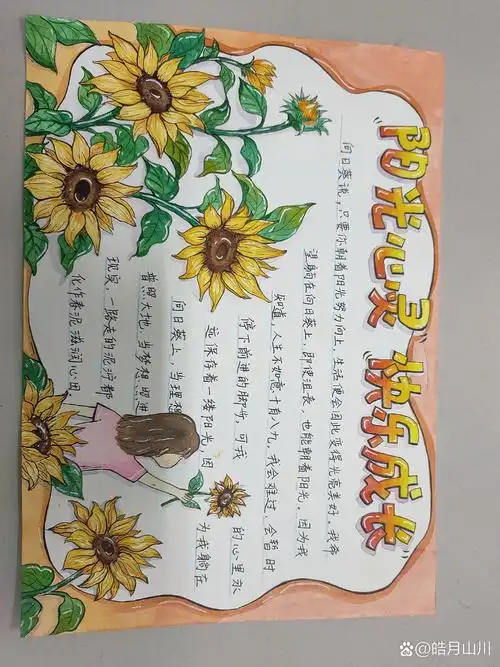 "阳光心灵 快乐成长"
向日葵说，只要你朝着阳光努力向上，生活便会因此变得光亮美好。我希
望躺在向日葵上，即使沮丧，也能朝着阳光，因为我
知道，人生不如意十有八九，我会难过，会暂时
停下前进的脚步，可我的心里永
远保存着一缕阳光，因为我躺在
向日葵上，当理想
普照大地，当梦想照进
现实，一路走的泥泞都
化作春泥滋润心田。
皓月山川